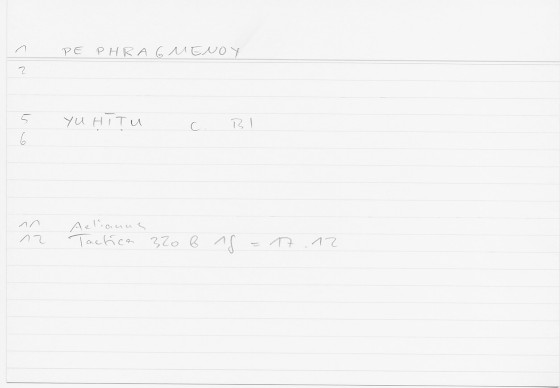 1 PEPHRAGMENOY
2
5 YUḤĪṬU C BI
6
11 Aelianus
12 Tactica 320 B 18 = 17.12